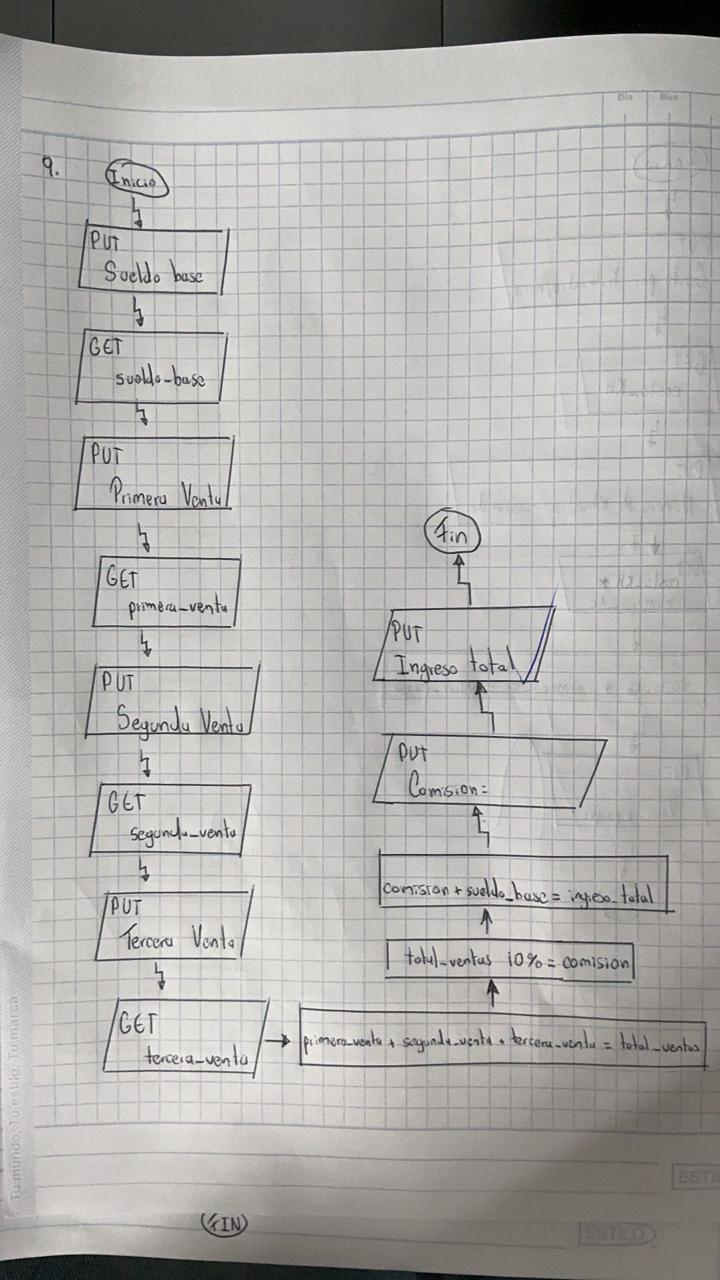 Dia Mes
9.
Inicio
PUT
Sueldo base
GET
sueldo_base
PUT
Primera Venta
GET
primera_venta
PUT
Segunda Venta
GET
segunda_venta
PUT
Tercera Venta
GET
tercera_venta
primera_venta + segunda_venta + tercera_venta = total_ventas
total_ventas 10% = comision
comision + sueldo_base = ingreso_total
PUT
Comision =
PUT
Ingreso total
Fin
Tu mundo, Tu estilo, Tu marca
ESTILO
(FIN)